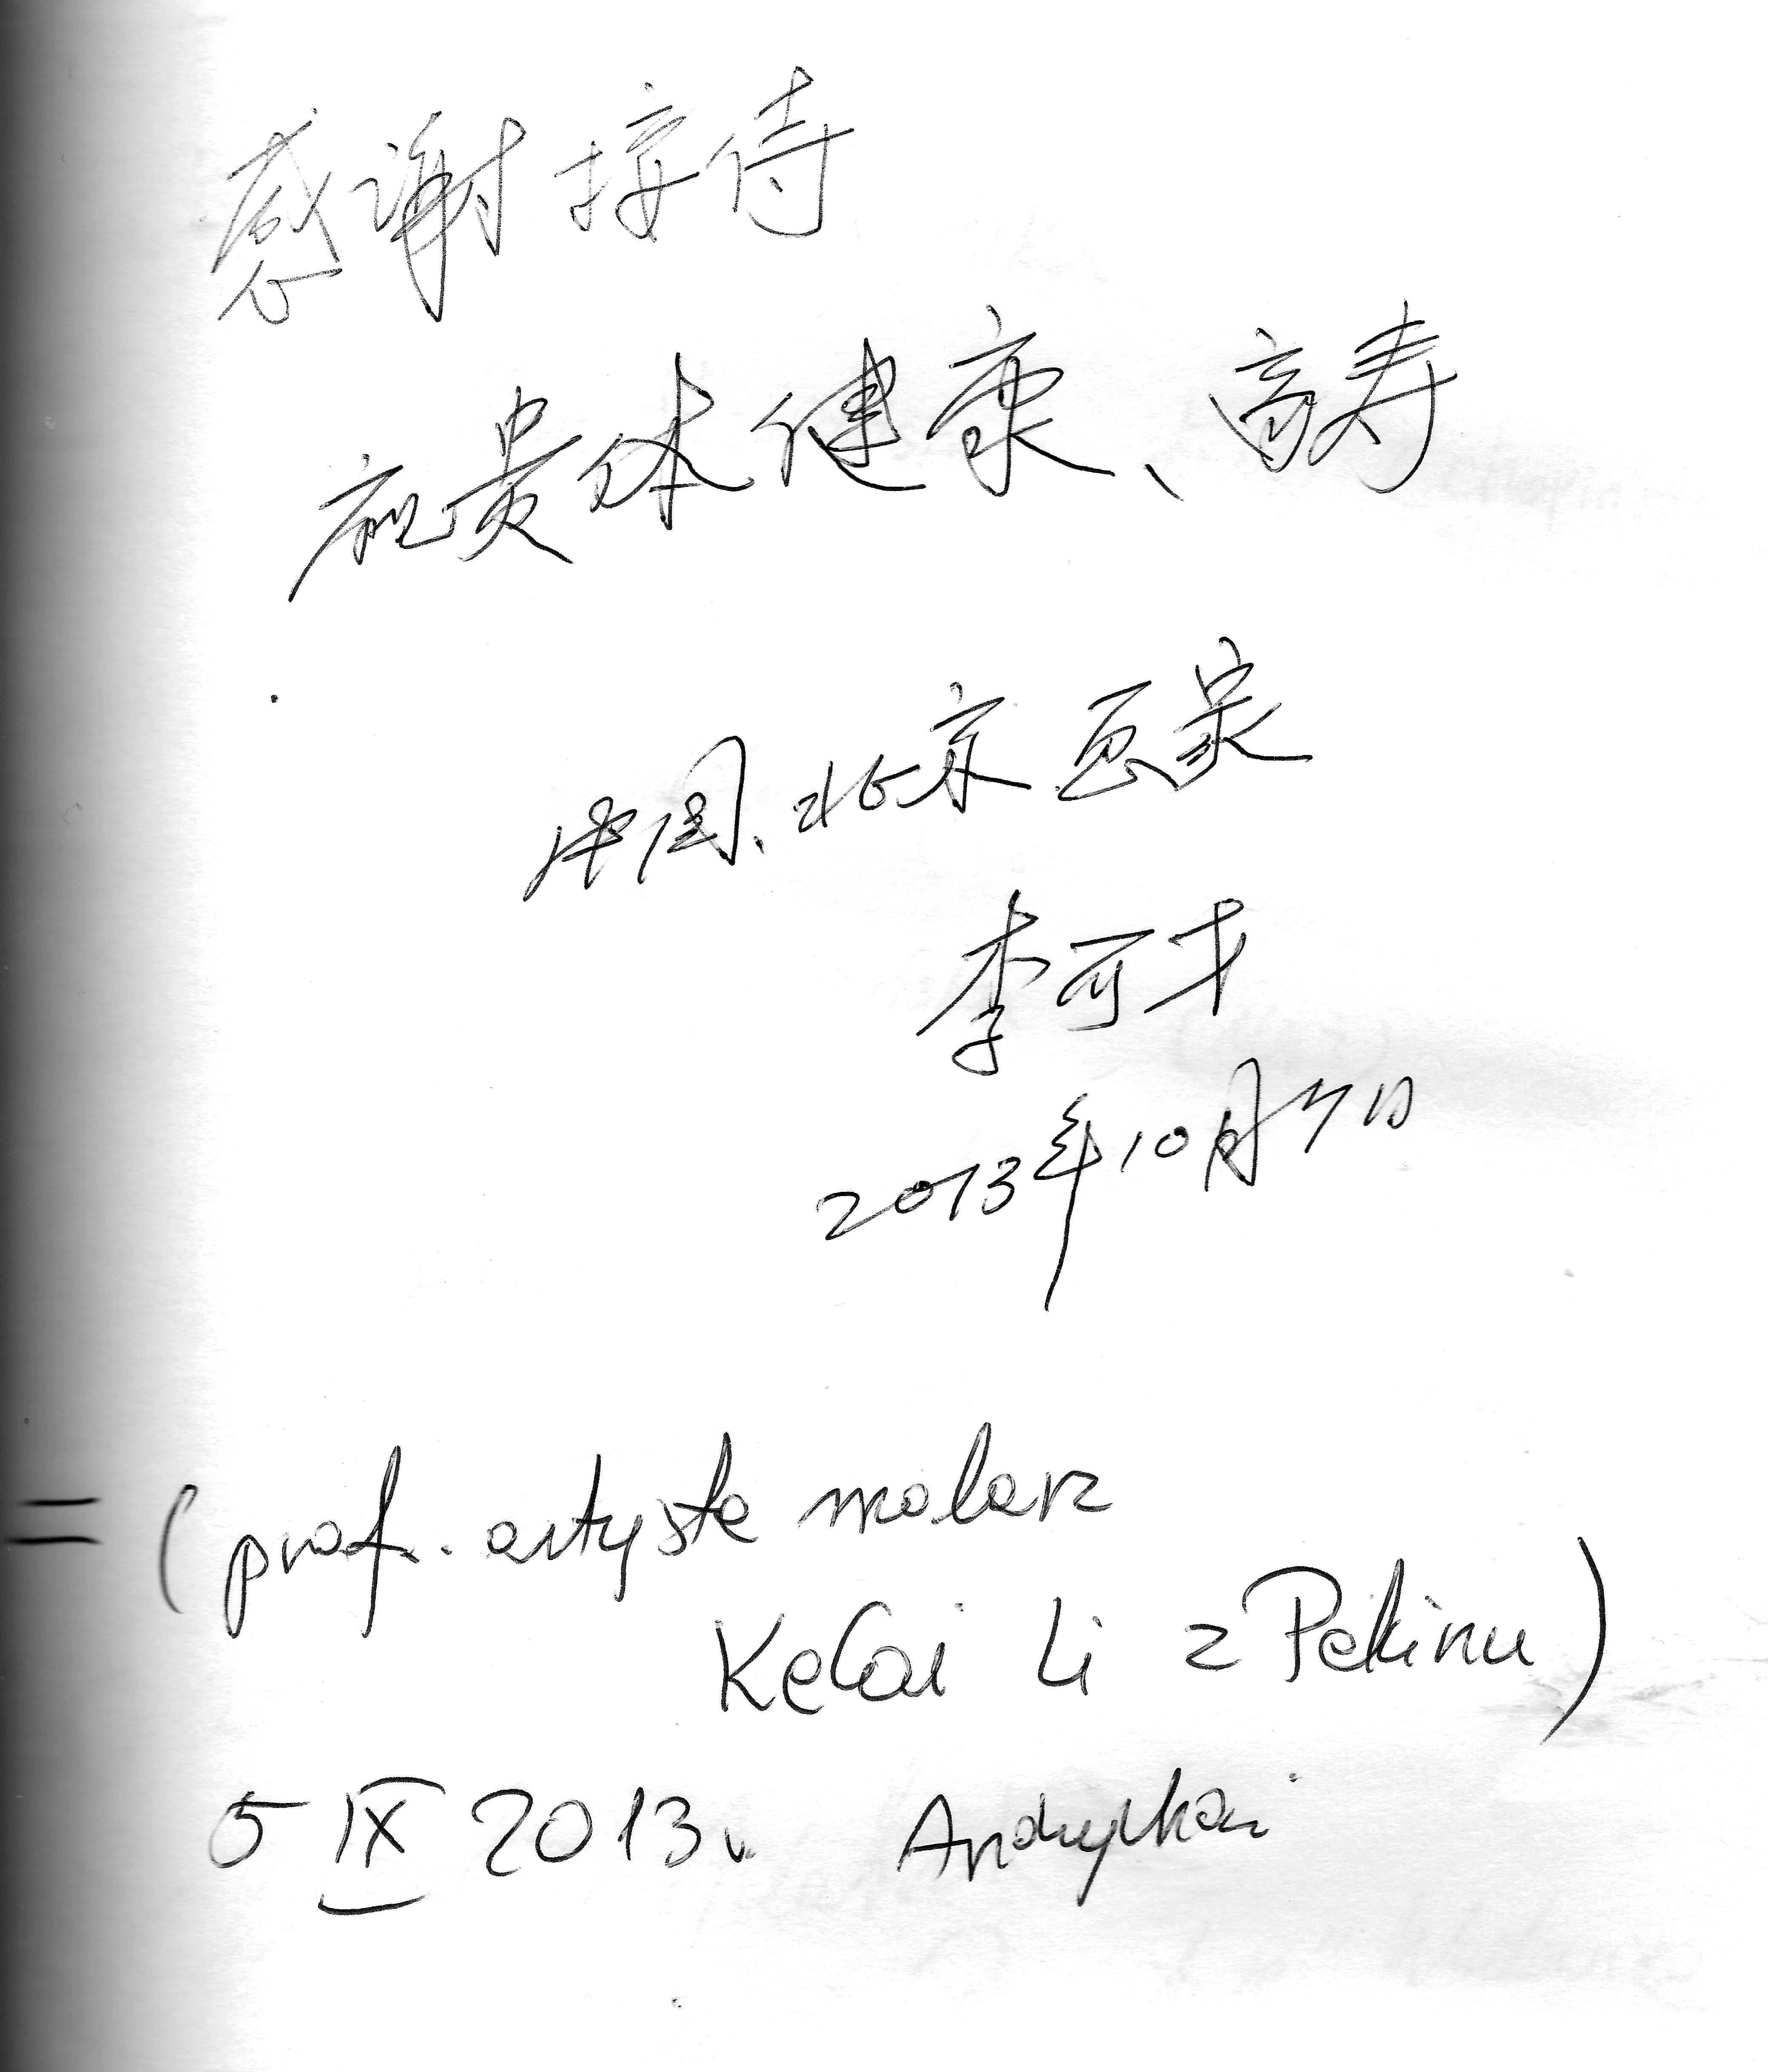 感谢接待
祝贵体健康、高寿
中国、北京画家
李可才
2013年10月5日
= (prof. artysta malarz
KeCai Li z Pekinu)
5 IX 2013.